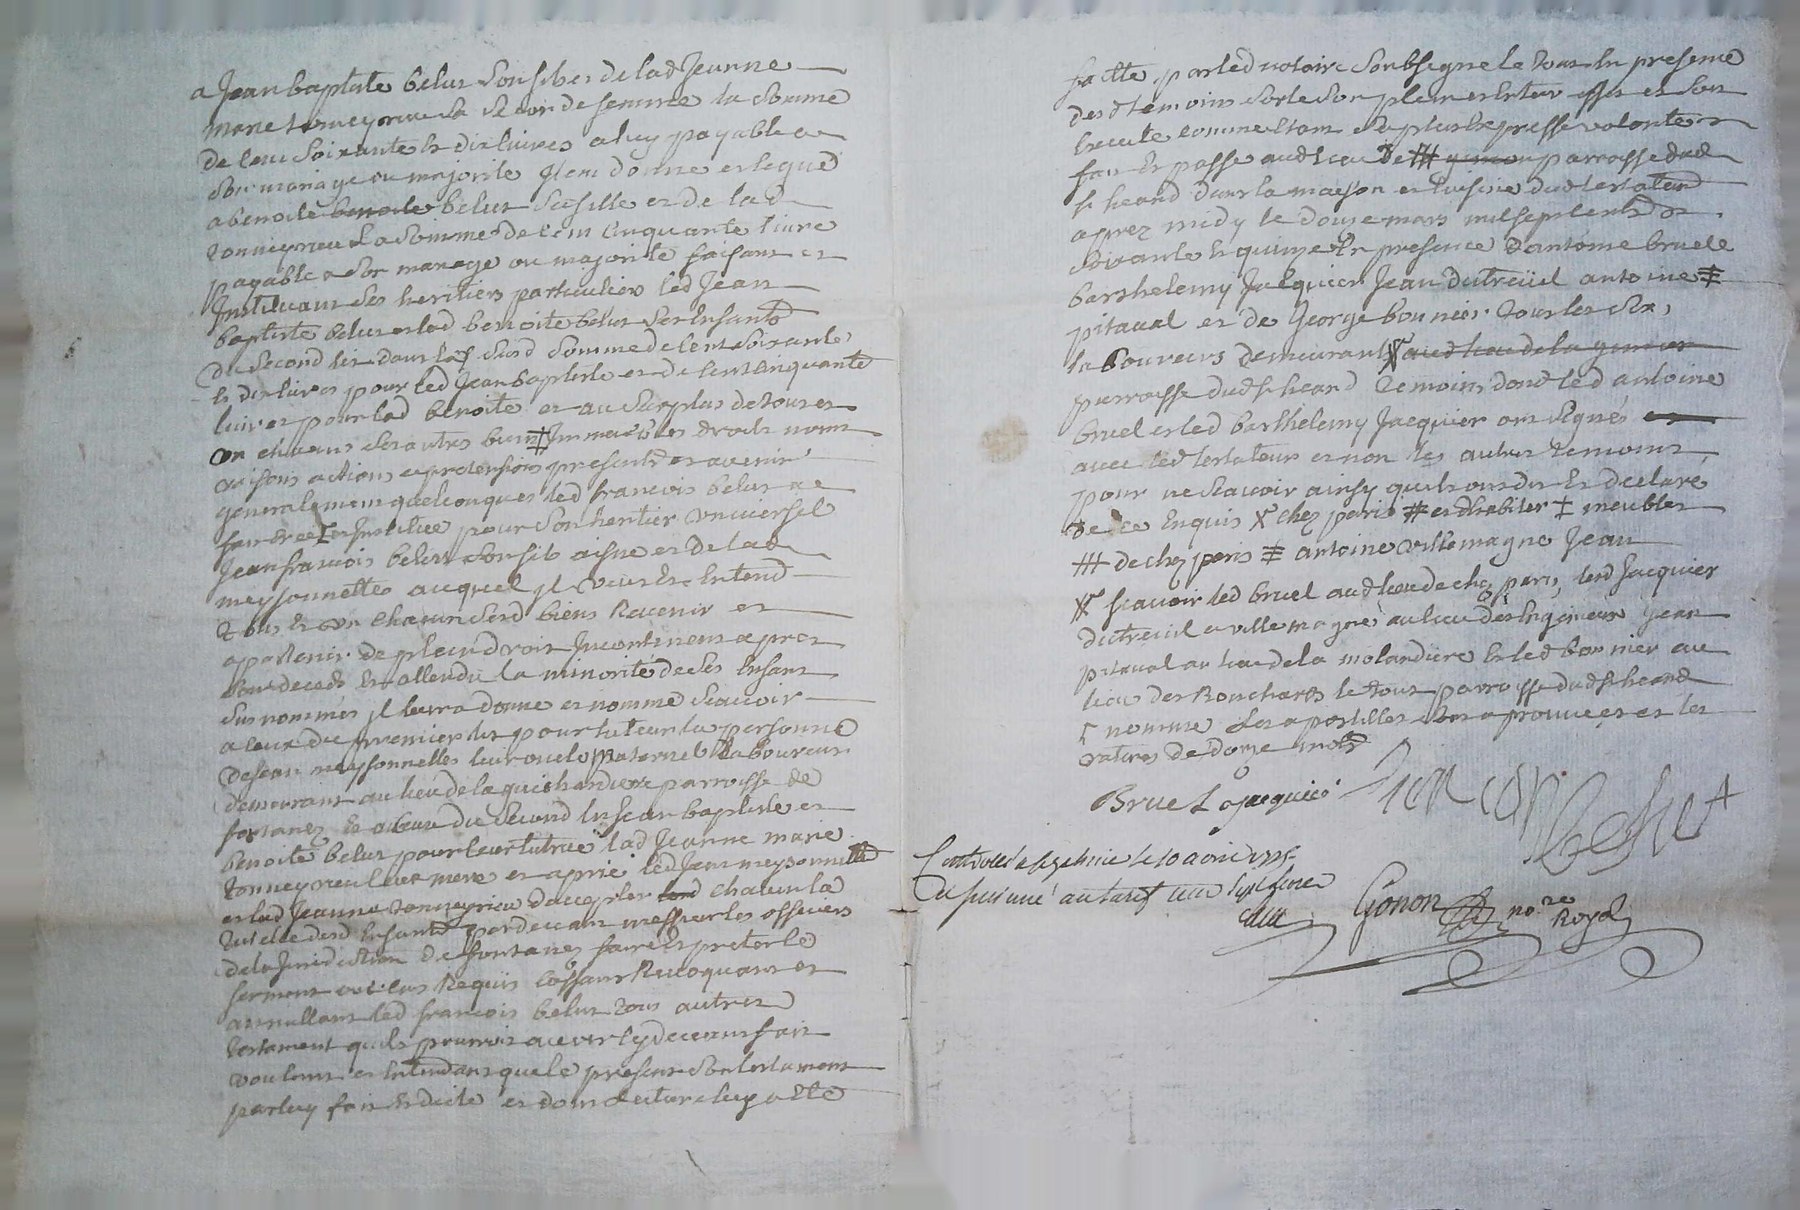 a Jean baptiste belur son fils et de lad Jeanne
marie tonneyrieu sa seconde femme la somme
de cent soixante et dix livres a luy payable a
son mariage ou majorité Item donne et legue
a benoite benoite belur sa fille et de lad
tonneyrieu la somme de cent cinquante livre
payable a son mariage ou majorité faisant et
Instituant ses heritiers particuliers led Jean
baptiste belur et lad benoite belur ses enfants
du second lit dans las susd somme de cent soixante
et dix livres pour led Jean baptiste et de cent cinquante
livres pour lad benoite et au surplus de tous et
un chacuns ses autres biens ‡ Immeubles droits noms
raisons actions et pretensions presents et avenir
generalement quelconques led francois belur a
fait cree et Institue pour son heritier universel
Jean francois belur son fils aisne et de lad
meysonnette auquel il veut et entend
tous et un chacun sesd biens Revenir et
apartenir de plein droit Incontinent apres
son deceds et attendu la minorité de ses enfans
sus nommés il leur a donne et nomme scavoir
a ceux du premier lit pour tuteur la personne
de Jean meysonnettes leur oncle maternel laboureur
demeurant au lieu de la guichardiere parroisse de
fontanez et a ceux du second lit Jean baptiste et
benoite belur pour leur tutrice lad Jeanne marie
tonneyrieu leur mere et a prié led Jean meysonnette
et lad Jeanne tonneyrieu d'accepter chacun la
tutelle desd enfants pardevant messieurs les officiers
de la Juridiction de fontanez faire et preter le
serment au cas Requis Cassant Revoquant et
annullant led francois belur tous autres
testament quil pourroit avoir cy devant fait
voulant et entendant que le present son testament
par luy fait et dicté et dont lecture luy a été
faitte par led notaire soubsigne le tout en presence
desd temoins sorte son plein et entier effet et soit
execute comme etant sa plus expresse volonte
fait et passe aud lieu de ⧻ parroisse dud
st heand dans la maison et cuisine dud testateur
apres midy le douze mars mil sept cents
soixante et quinze En presence d'antoine bruel
barthelemy Jacquier Jean dutreüil antoine ‡
pitaval et de George bonnier tous les six
laboureurs demeurants aud lieu de la
parroisse dud st heand temoins dont led antoine
bruel et led barthelemy Jacquier ont signés
avec led testateur et non les autres temoins
pour ne scavoir ainsy quils ont dit et declaré
de ce enquis chez paris et d'habiter ‡ meubles
⧻ de chez paris ‡ antoine villemagne Jean
scavoir led bruel aud lieu de chez paris, led Jacquier
dutreuil a villemagne au lieu des Jean
pitaval au lieu de la molandiere et led bonnier au
lieu des Rouchards le tout parroisse dud st heand
nomme les apostilles sont aprouvées et les
ratures de douze mots
Bruel Jacquier
Controllé a le 10 avril 1775
Gonon no.re Royal